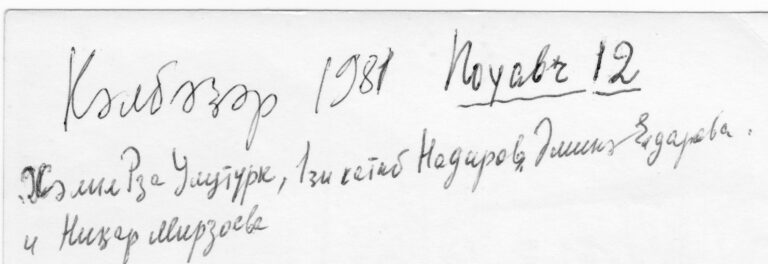 Кәлбәҹәр 1981 Ноуавг 12
Хәлил Рза Улутурк, 1зи катиб Надиров, Элмиз Ејдарова.
и Нигар Мирзоева